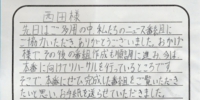 西田様
先日はご多用の中、私たちのニュース番組に
ご協力いただきありがとうございました。おかげ
様で今の後の番組作成も順調に進み、今は
本番に向けてリハーサルを行っています。ところで
さて、本番にて完成した番組をご覧いただき
たいと思い、お手紙を送らせていただきました。